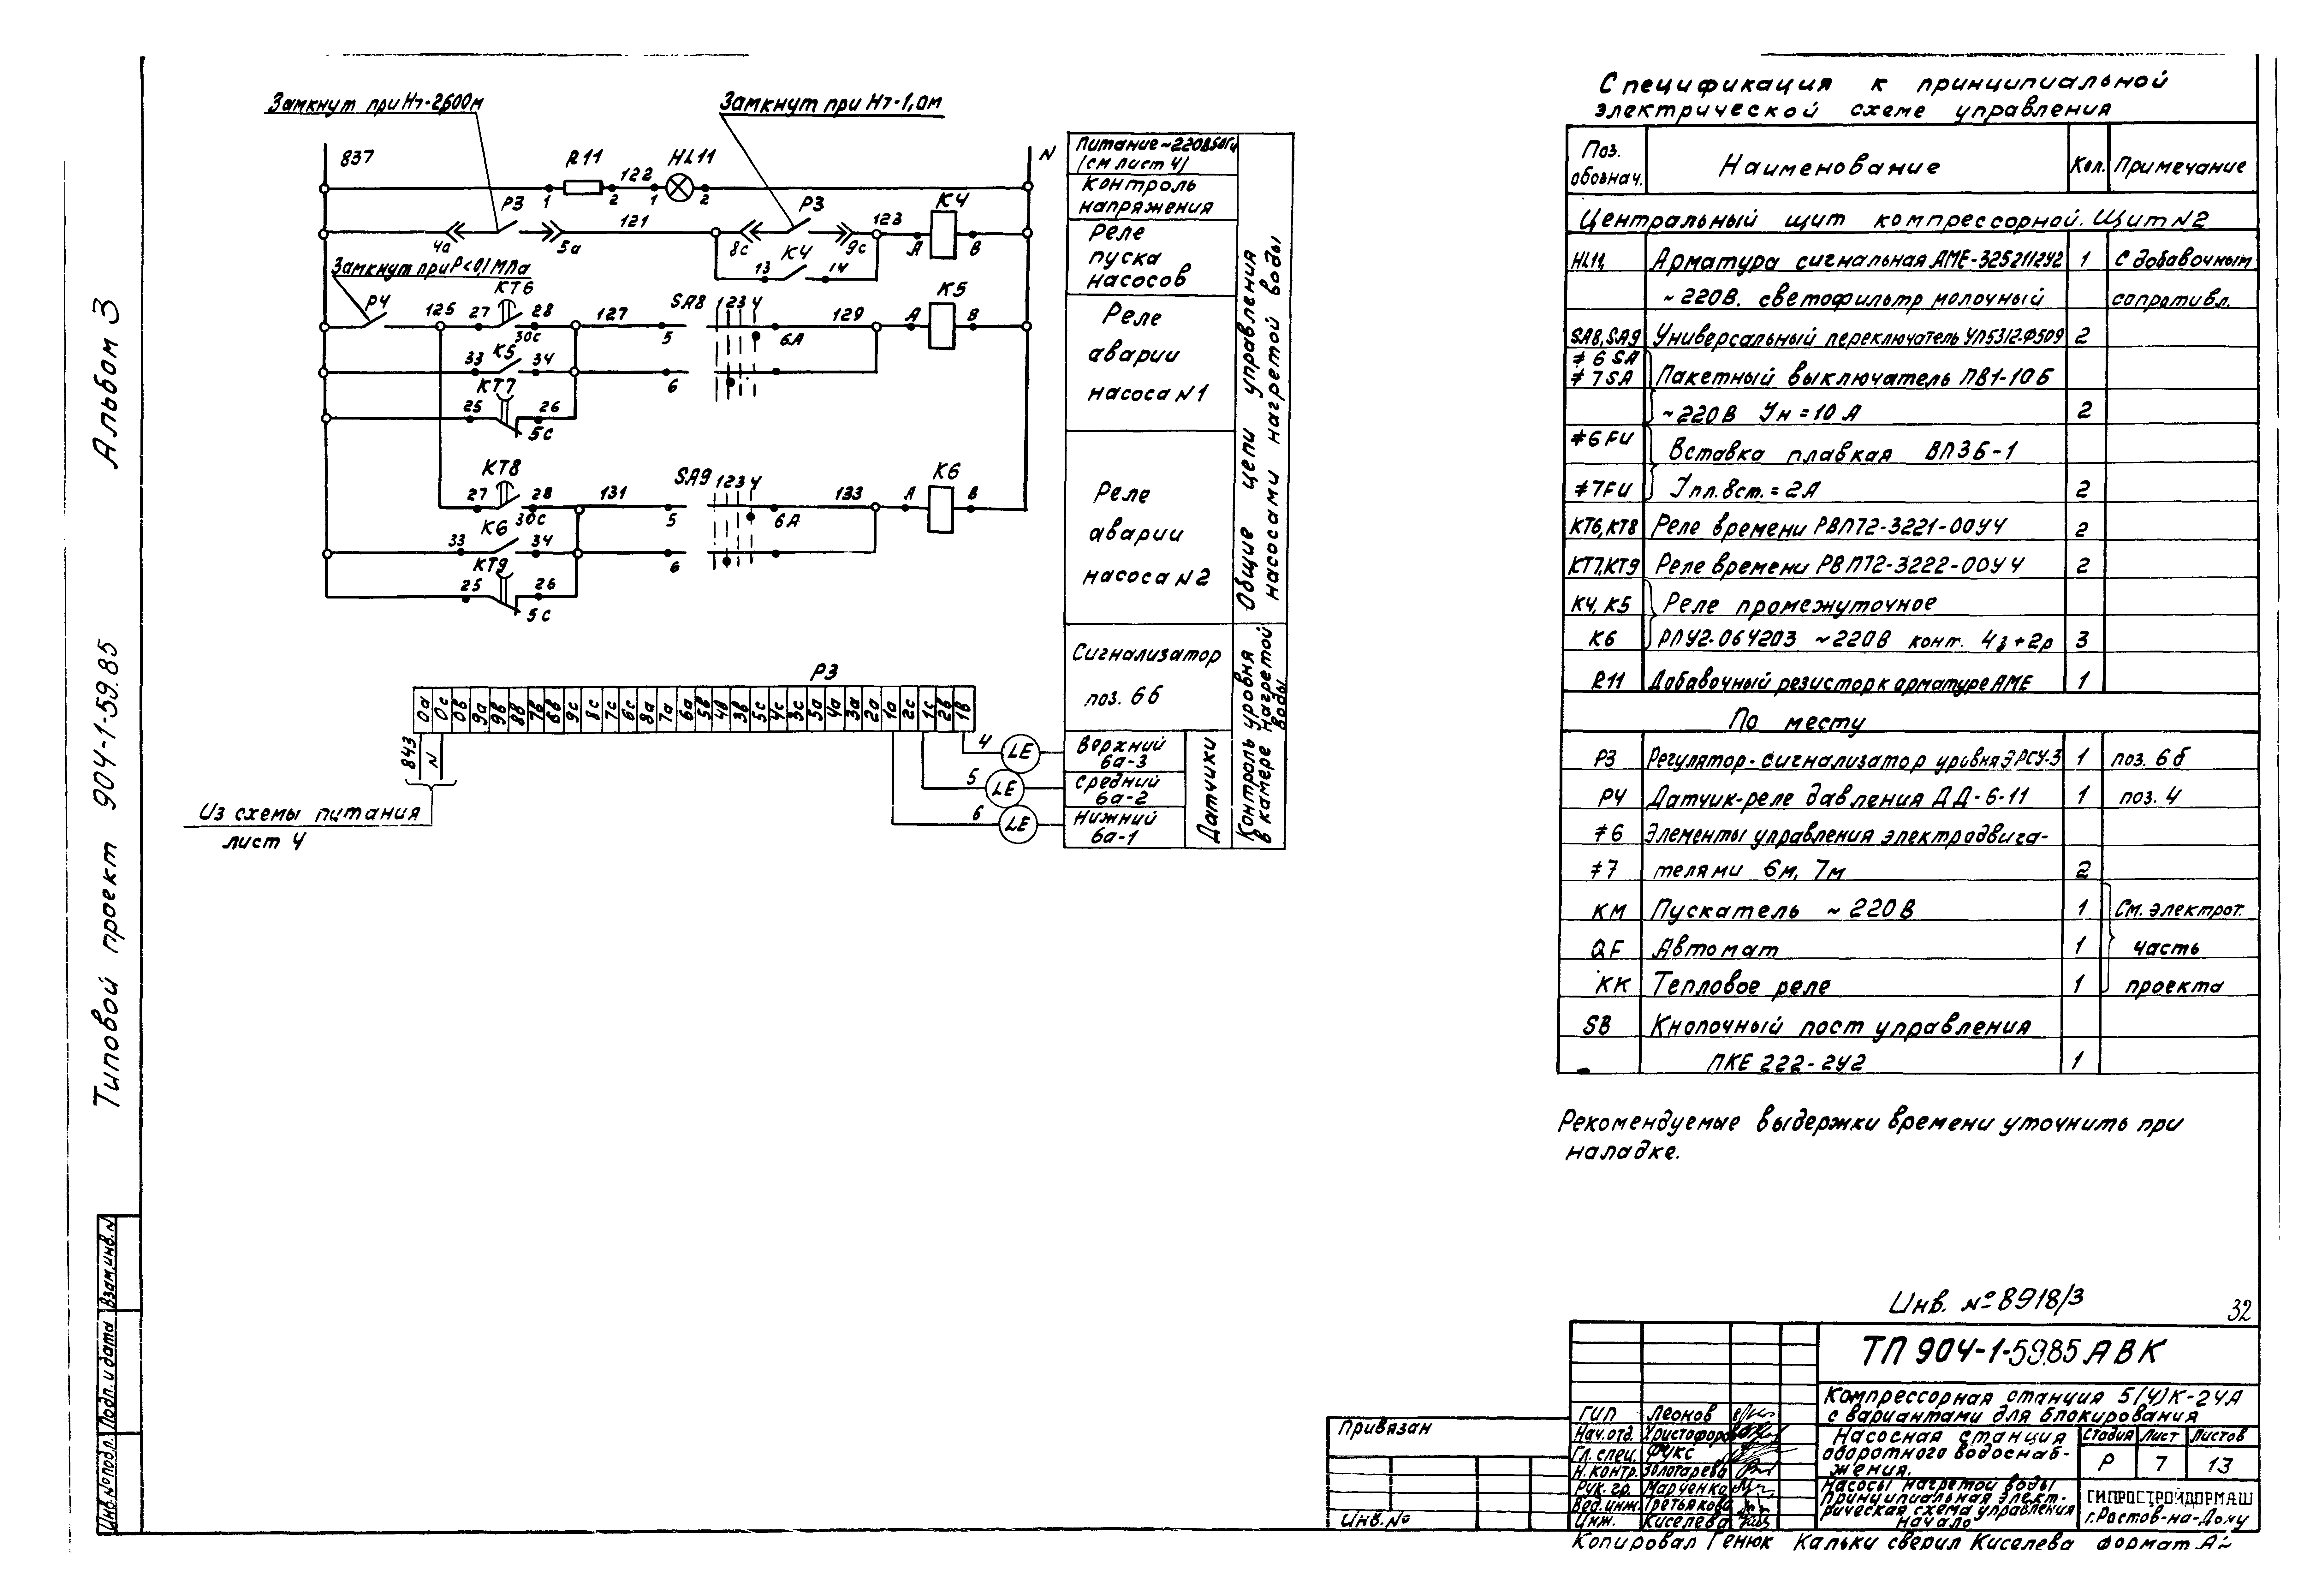 Альбом 3
Типовой проект 904-1-59.85
Взам.инв.N
Подп. и дата
Инв.№подл.
Замкнут при Н7-2,600м
Замкнут при Н7-1,0м
837
R11
122
HL11
N
1 2 1 2
Р3
121
Р3
123
К4
4а
5а
8с
9с
А
В
К4
13
14
Замкнут при Р<0,1МПа
Р4
125
27
КТ6
28
30с
127
SA8
1234
5
6А
129
К5
А
В
33
К5
34
6
КТ7
25
26
5с
КТ8
27
28
30с
131
SA9
1234
5
6А
133
К6
А
В
К6
33
34
6
КТ9
25
26
5с
Питание~220В50Гц
(см лист 4)
Контроль
напряжения
Реле
пуска
насосов
Реле
аварии
насоса N1
Реле
аварии
насоса N2
Общие цепи управления
насосами нагретой воды
Сигнализатор
поз. 6б
Контроль уровня
в камере нагретой
воды
Р3
0а 0с 0в 9а 9в 8в 7в 6в 9с 8с 7с 6с 8а 7а 6а 5в 4в 3в 5с 4с 3с 5а 4а 3а 2а 1а 2с 1с 2в 1в
843
N
Из схемы питания
лист 4
4
LE
Верхний
6а-3
5
LE
Средний
6а-2
6
LE
Нижний
6а-1
Датчики
Спецификация к принципиальной
электрической схеме управления
Поз.
обознач.
Наименование
Кол.
Примечание
Центральный щит компрессорной. Щит N2
HL11, Арматура сигнальная АМЕ-325211292 1 С добавочным
~220В. светофильтр молочный сопротивл.
SA8,SA9 Универсальный переключатель УП5312-Ф509 2
≠6SA
≠7SA Пакетный выключатель ПВ1-10Б
~220В Ун=10А 2
≠6FU Вставка плавкая ВПЗБ-1
≠7FU Упл.вст.=2А 2
КТ6,КТ8 Реле времени РВП72-3221-00У4 2
КТ7,КТ9 Реле времени РВП72-3222-00У4 2
К4, К5 Реле промежуточное
К6 РПУ2-064203 ~220В конт. 4з+2р 3
R11 Добавочный резистор к арматуре АМЕ 1
По месту
Р3 Регулятор-сигнализатор уровня ЭРСУ-3 1 поз. 6б
Р4 Датчик-реле давления ДД-6-11 1 поз. 4
≠6 Элементы управления электродвига-
≠7 телями 6м, 7м 2
КМ Пускатель ~220В 1 См. электрот.
QF Автомат 1 часть
КК Тепловое реле 1 проекта
SB Кнопочный пост управления
ПКЕ 222-2У2 1
Рекомендуемые выдержки времени уточнить при
наладке.
Инв. №8918/3
32
ТП 904-1-59.85 АВК
Компрессорная станция 5(4)К-24А
с вариантами для блокирования
Насосная станция
оборотного водоснаб-
жения.
Стадия Лист Листов
Р 7 13
Насосы нагретой воды
Принципиальная элект-
рическая схема управления
Начало
ГИПРОСТРОЙДОРМАШ
г.Ростов-на-Дону
ГИП Леонов
Нач.отд. Христофоров
Гл.спец. Фукс
Н.контр. Золотарева
Рук.гр. Марченко
Вед.инж. Третьякова
Инж. Киселева
Привязан
Инв.№
Копировал Генюк Кальки сверил Киселева формат А2